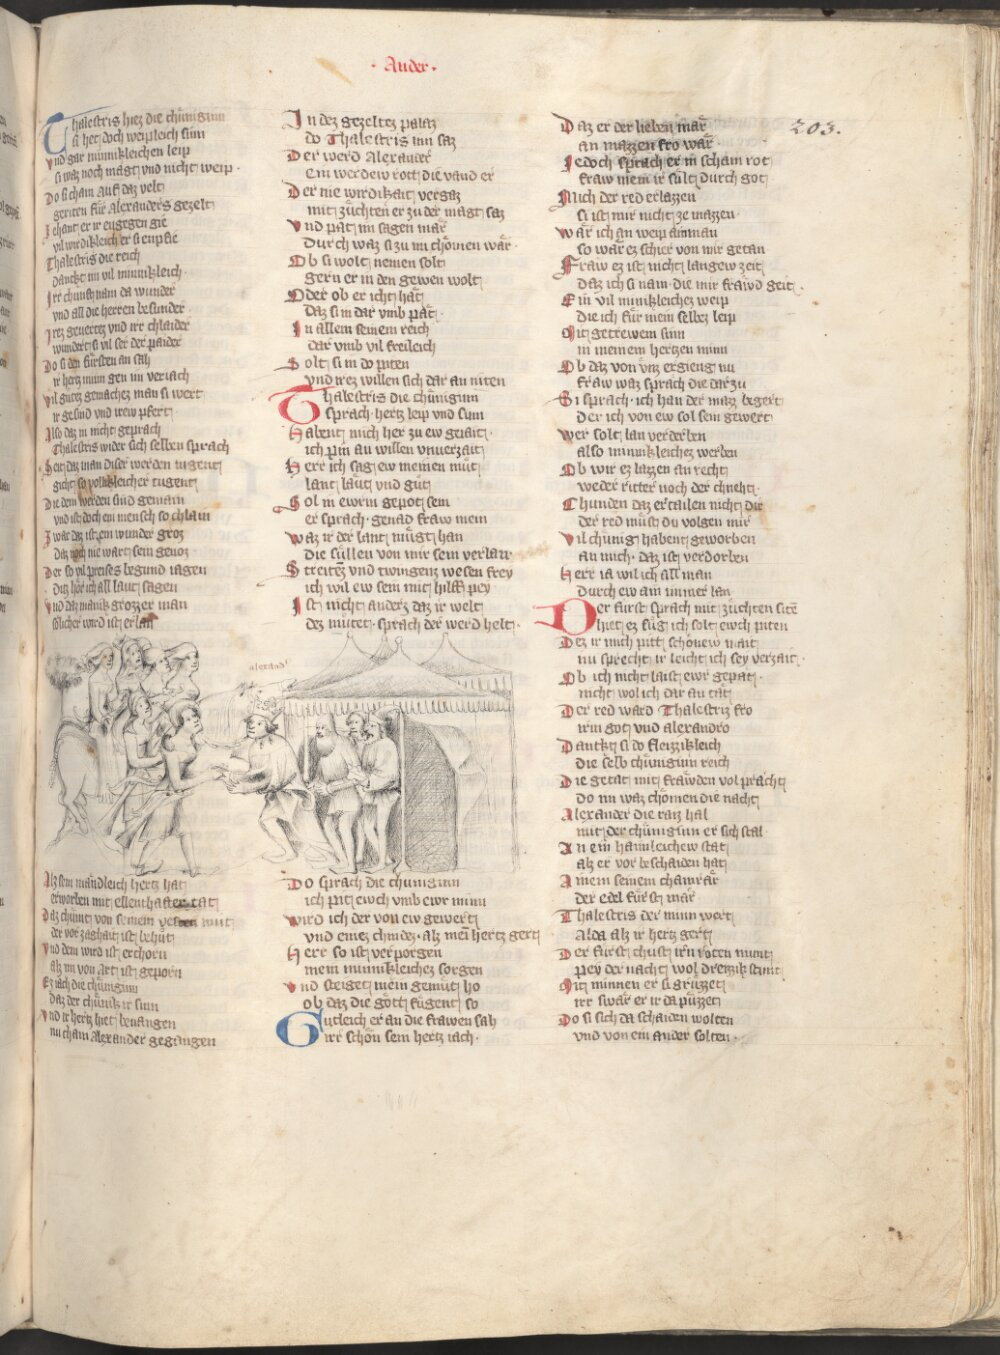 · Ander ·
203.
Thalestris hiez die chüniginn
si het doch weipleich sinn
vnd gar minnikleichen leip
si waz noch magt vnd nicht weip ·
Do si cham auf daz velt
geriten für Alexanders gezelt
zehant er ir engegen gie
vil wirdikleich er si enpfie
Thalestris die reich
danckt im vil minnikleich ·
Irr chunft nam da wunder
vnd all die herren besunder ·
Irez geuertez vnd irr chlaider
wundert si vil ser der paider
Do si den fürsten an sah
ir hertz minn gen im veriach
vil gutez gemachez man si wert
ir gesind vnd irew pfert
Also daz in nicht gesprach
Thalestris wider sich selben sprach
Seit daz man diser werden tugent
gicht so volkleicher tugent
Die dem werden sind gemain
vnd ist doch ein mensch so chlain
Zwar daz ist ein wunder groz
daz noch nie wart sein genoz
Der so vil preises begund iagen
Ditz hör ich all laut sagen
vnd daz manik grozzer man
sölicher wird ist erlan
alexand
Alz sein mändleich hertz hat
erworben mit ellenthafter tat
Daz chümt von seinem vesten mut
der vor zaghait ist behüt
vnd dem wird ist erchorn
alz im von art ist geporn
Ez iach die chüniginn
daz der chünik ir sinn
vnd ir hertz hiet beuangen
nu cham Alexander gegangen
In dez gezeltez palaz
do Thalestris inn saz
Der werd Alexander
ein werdew rott die vand er
Der nie wirdikait vergaz
mit züchten er zu der magt saz
vnd pat im sagen mär
durch waz si zu im chömen wär ·
Ob si wolt nemen solt
gern er in den gewen wolt
Oder ob er icht hät
daz si in dar vmb pät ·
In allem seinem reich
dar vmb vil freileich
Solt si in do piten
vnd irez willen sich dar an niten
Thalestris die chüniginn
sprach · hertz leip vnd sinn
Habent mich her zu ew geiait ·
ich pin an willen vnuerzait
Herr ich sag ew meinen müt
lant läut vnd güt
Sol in ewrm gepot sein
er sprach · genad fraw mein
Waz ir der lant mügt han
die süllen von mir sein verlan
Streitez vnd twingenz wesen frey
ich wil ew sein mit hilff pey
Ist nicht anderz daz ir welt
dez mütet · sprach der werd helt ·
Do sprach die chüniginn
ich pit ewch vmb ewr minn
wird ich der von ew gewert
vnd einez chindez · alz mein hertz gert
Herr so ist verporgen
mein minnikleichez sorgen
vnd steiget mein gemüt ho
ob daz die gött fügent so
Gutleich er an die frawen sah
irr schön sein hertz iach ·
Daz er der lieben mär
an mazzen fro wär ·
Jedoch sprach er in scham rot
fraw mein ir sült durch got
Mich der red erlazzen
si ist mir nicht ze mazzen ·
wär ich an weip ainman
so wär ez schier von mir getan
Fraw ez ist nicht langew zeit
daz ich si nam · die mir fräwd geit ·
Ein vil minikleichez weip
die ich für mein selbez leip
Mit getrewem sinn
in meinem hertzen minn
Ob daz von vnz ergieng nu
fraw waz sprach die dar zu
Si sprach · ich han der maz begert
Der ich von ew sol sein gewert
wer solt lan verderben
also minnikleichez werben
Ob wir ez lazzen an recht
weder ritter noch der chneht ·
Chunden daz ertailen nicht dir
der red müst du volgen mir
vil chünig habent geworben
an mich · daz ist verdorben
Herr ia wil ich all man
durch ew ain immer lan
Der fürst sprach mit züchten site
hiet ez füg ich solt ewch piten
Dez ir mich pitt schönew mait
nu sprecht ir leicht ich sey verzait ·
Ob ich nicht laist ewr gepät ·
nicht wol ich dar an tät
Der red ward Thalestriz fro
irm got vnd alexandro
Danckt si do fleizzikleich
die selb chüniginn reich
Die getat mit fräwden volpracht
do nu waz chömen die nacht
Alexander die raiz hal
mit der chüniginn er sich stal ·
In ein hainleichew stat
alz er vor beschaiden hat
Amein seinem chamrär
der edel fürst mär
Thalestris der minn wert
Alda alz ir hertz gert
Der fürst chust irn roten munt
pey der nacht wol dreizzik stunt
Mit minnen er si grüzzet
irr swär er ir da püzzet
Do si sich da schaiden wolten
vnd von ein ander solten ·